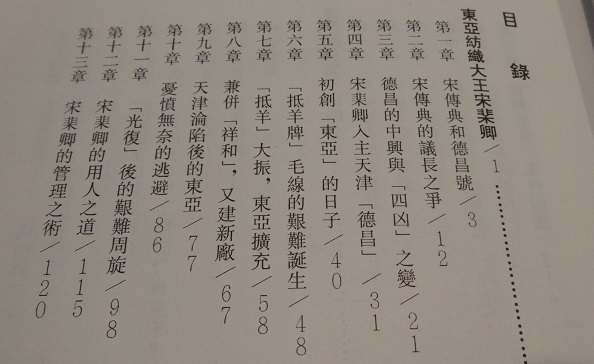 目錄
東亞紡織大王宋棐卿／1
第一章 宋傳典和德昌號／3
第二章 宋傳典的議長之爭／12
第三章 德昌的中興與「四凶」之變／21
第四章 宋棐卿入主天津「德昌」／31
第五章 初創「東亞」的日子／40
第六章 「抵羊牌」毛線的艱難誕生／48
第七章 「抵羊」大振，東亞擴充／58
第八章 兼併「祥和」，又建新廠／67
第九章 天津淪陷後的東亞／77
第十章 憂憤無奈的逃避／86
第十一章 「光復」後的艱難周旋／98
第十二章 宋棐卿的用人之道／115
第十三章 宋棐卿的管理之術／120